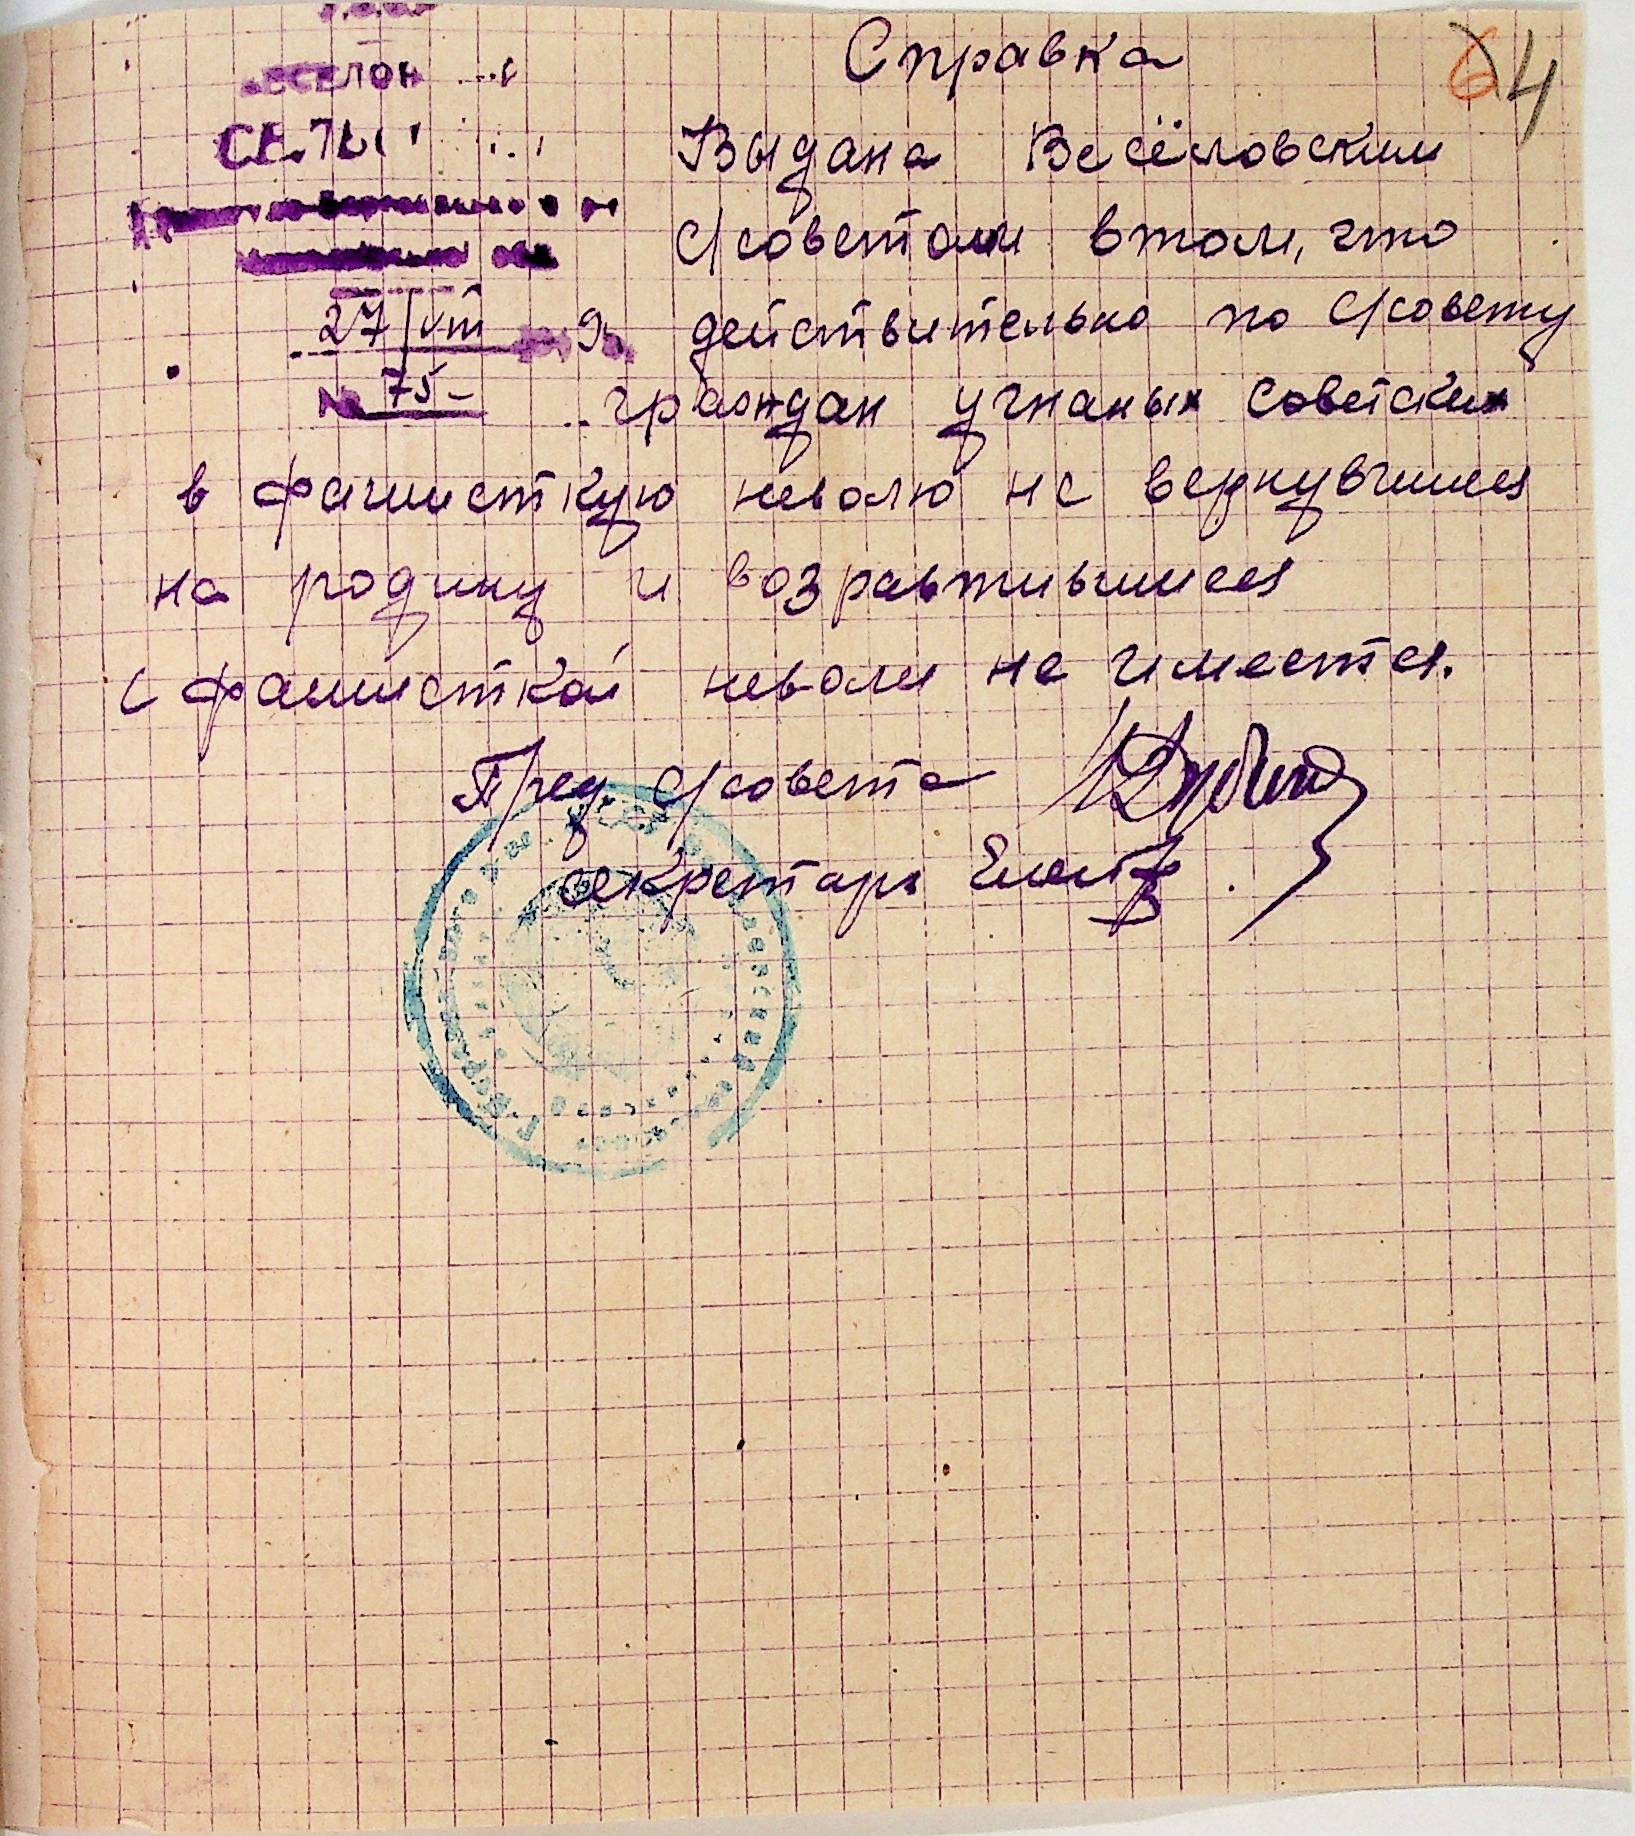 Справка
64
Выдана Весёловским
с/советом в том, что
27/VIII
действительно по с/совету
№ 75-
граждан угнаных советских
в фашисткую неволю не вернувшиеся
на родину и возравтившиеся
с фашисткой неволи не имеется.
Пред. с/совета
секретарь